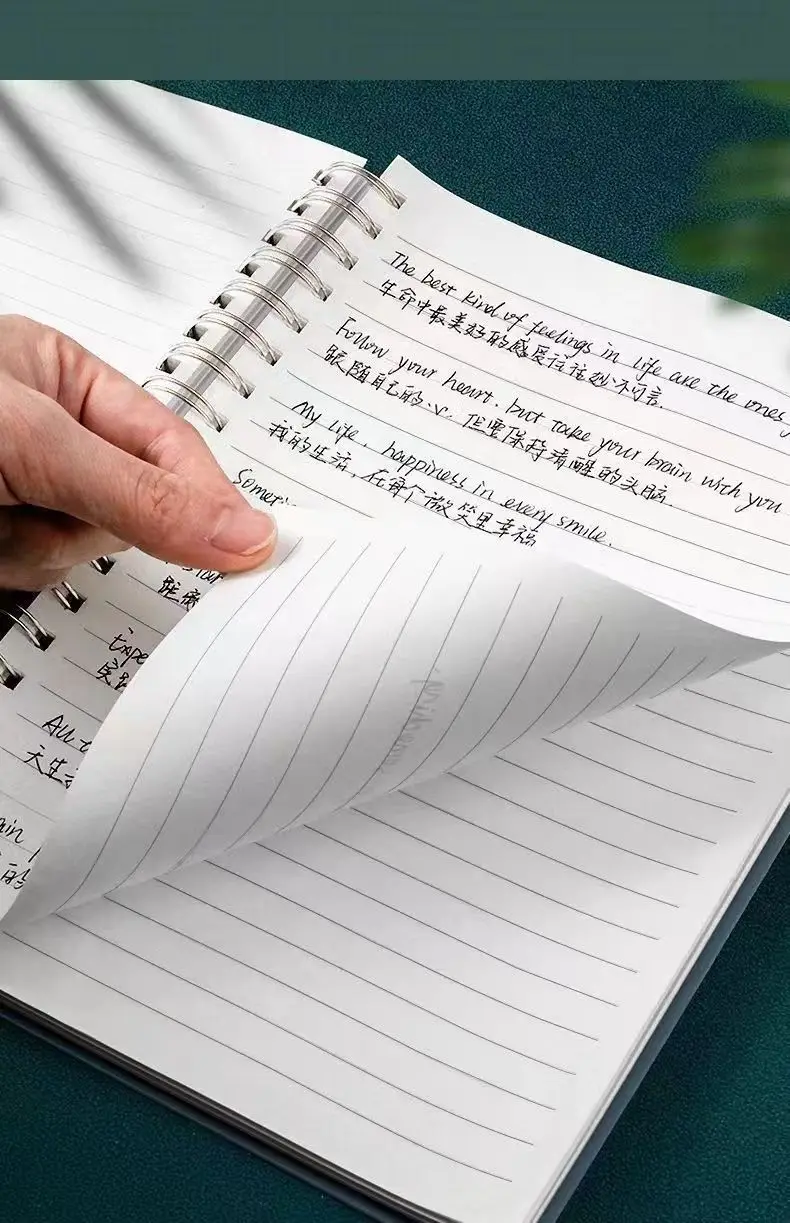 The best kind of feelings in life are the ones
生命中最美好的感受往往妙不可言.
Follow your heart, but take your brain with you
跟随自己的心, 但要保持清醒的头脑
My life, happiness in every smile.
我的生活, 在每个微笑里幸福
Someti
All t
天生
ain
的